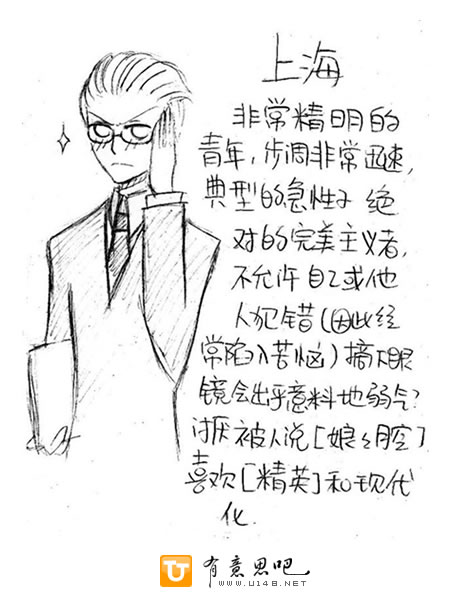 上海
非常精明的
青年,步调非常迅速,
典型的急性子 绝
对的完美主义者,
不允许自己或他
人犯错(因此经
常陷入苦恼)摘下眼
镜会出乎意料地弱气?
讨厌被人说[娘娘腔]
喜欢[精英]和现代
化.
有意思吧
www.u148.net